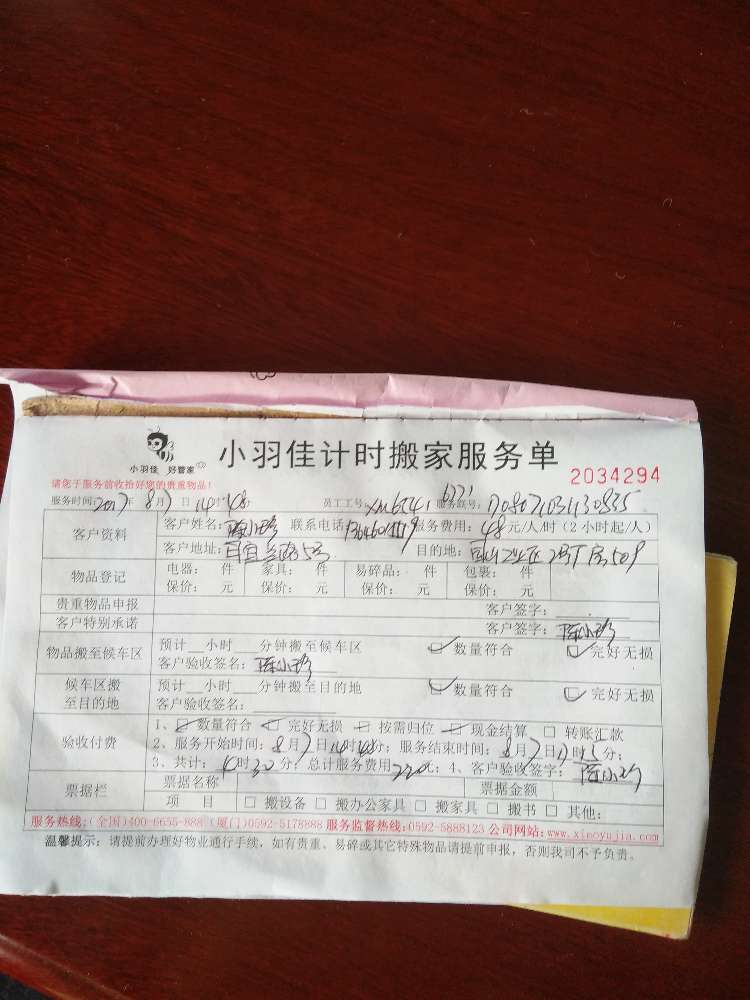 小羽佳 好管家
小羽佳计时搬家服务单
2034294
请您于服务前收拾好您的贵重物品!
服务时间:2017年8月7日14时48分 员工工号: 服务账号:
客户资料
客户姓名:陈小珍 联系电话: 服务费用:48元/人/时(2小时起/人)
客户地址: 目的地:
物品登记
电器: 件 家具: 件 易碎品: 件 包裹: 件
保价: 元 保价: 元 保价: 元 保价: 元
贵重物品申报 客户签字:
客户特别承诺 客户签字:陈小珍
物品搬至候车区
预计__小时___分钟搬至候车区 ☑数量符合 ☑完好无损
客户验收签名:陈小珍
候车区搬至目的地
预计__小时___分钟搬至目的地 ☑数量符合 ☑完好无损
客户验收签名:
验收付费
1、☑数量符合 ☑完好无损 ☑按需归位 ☑现金结算 □转账汇款
2、服务开始时间:8月7日14时48分;服务结束时间:8月7日 时 分;
3、共计: 时30分;总计服务费用 元;4、客户验收签字:陈小珍
票据栏
票据名称 票据金额
项 目 □搬设备 □搬办公家具 □搬家具 □搬书 □其他:
服务热线:(全国)400-6655-888 (厦门)0592-5178888 服务监督热线:0592-5888123 公司网站:www.xiaoyujia.com
温馨提示:请提前办理好物业通行手续,如有贵重、易碎或其它特殊物品请提前申报,否则我司不予负责。